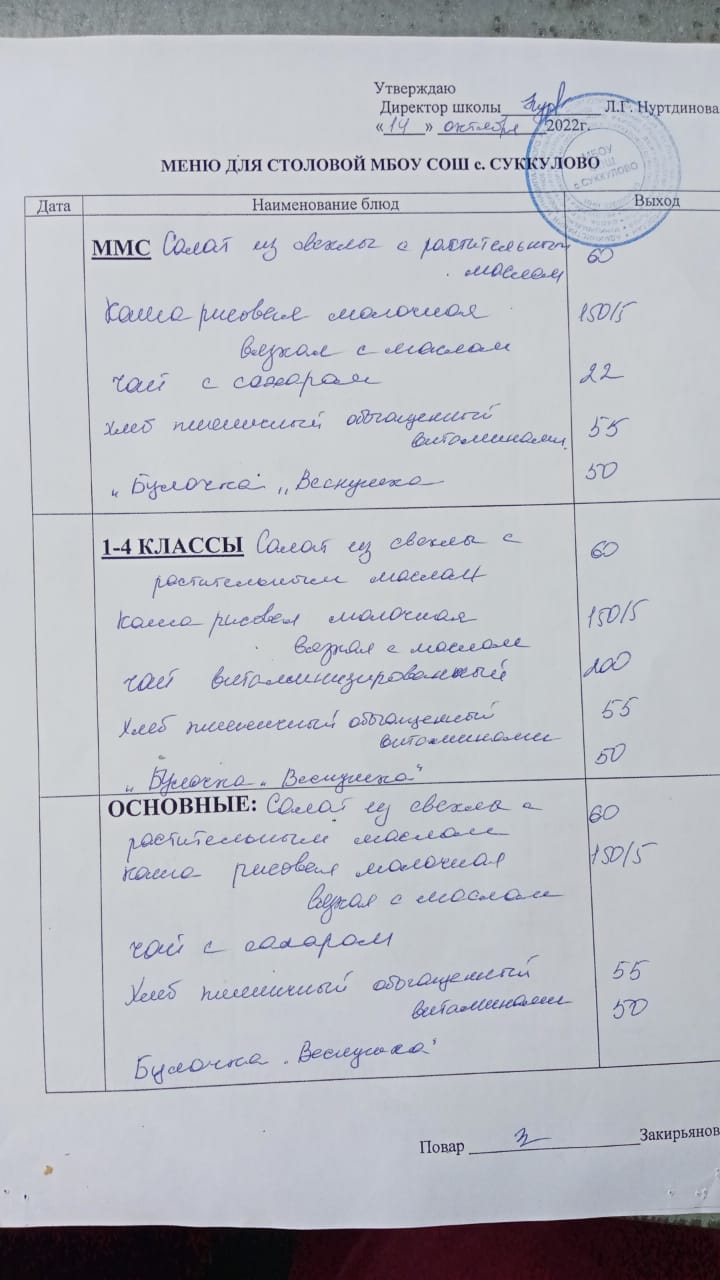 Утверждаю
Директор школы Л.Г. Нуртдинова
« 14 » октября 2022г.
МБОУ
СОШ
с СУККУЛОВО
МЕНЮ ДЛЯ СТОЛОВОЙ МБОУ СОШ с. СУККУЛОВО
Дата Наименование блюд Выход
ММС Салат из свеклы с растительным 60
маслом
Каша рисовая молочная 150/5
вязкая с маслом
чай с сахаром 22
Хлеб пшеничный обогащенный 55
витаминами.
„ Булочка „Веснушка 50
1-4 КЛАССЫ Салат из свеклы с 60
растительным маслом
Каша рисовая молочная 150/5
вязкая с маслом
чай витаминизированный 200
Хлеб пшеничный обогащенный 55
витаминами
„ Булочка „ Веснушка" 50
ОСНОВНЫЕ: Салат из свеклы с 60
растительным маслом
каша рисовая молочная 150/5
вязкая с маслом
чай с сахаром
Хлеб пшеничный обогащенный 55
витаминами 50
Булочка „Веснушка"
Повар Закирьянов